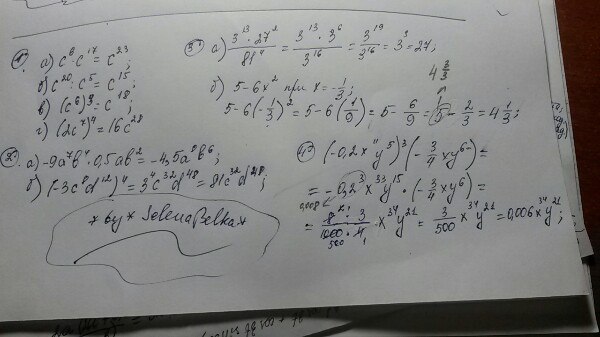 1°) а) c⁶ · c¹⁷ = c²³;
б) c²⁰ : c⁵ = c¹⁵;
в) (c⁶)³ = c¹⁸;
г) (2c⁷)⁴ = 16c²⁸
2°) а) -9a⁷b⁴ · 0,5ab² = -4,5a⁸b⁶;
б) (-3c⁸d¹²)⁴ = 3⁴c³²d⁴⁸ = 81c³²d⁴⁸;
* by * SelenaBelka *
3°) а) 3¹³ · 27² / 81⁴ = 3¹³ · 3⁶ / 3¹⁶ = 3¹⁹ / 3¹⁶ = 3³ = 27;
4 3/3
б) 5 - 6x² при x = -1/3;
5 - 6(-1/3)² = 5 - 6(1/9) = 5 - 6/9 = 5 - 2/3 = 4 1/3;
4°) (-0,2x¹¹y⁵)³ (-3/4 xy⁶) =
= -0,2³x³³y¹⁵ · (-3/4 xy⁶) =
0,008
= 8 · 3 / 1000 · 4 · x³⁴y²¹ = 3/500 x³⁴y²¹ = 0,006x³⁴y²¹;
500